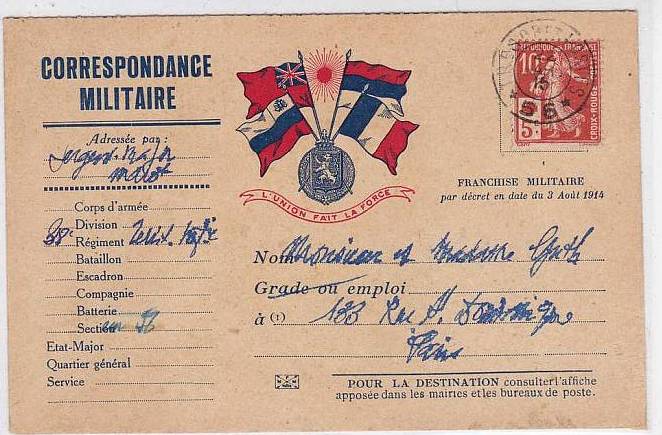 CORRESPONDANCE
MILITAIRE
Adressée par :
Sergent-Major
Corps d'armée
Division
Régiment
Bataillon
Escadron
Compagnie
Batterie
Section
Etat-Major
Quartier général
Service
L'UNION FAIT LA FORCE
TRESOR ET POSTES
* 56 *
REPUBLIQUE FRANÇAISE
10c
5c
CROIX-ROUGE
FRANCHISE MILITAIRE
par décret en date du 3 Août 1914
Nom Monsieur et Madame
Grade ou emploi
à (1) 133 Rue
Paris
POUR LA DESTINATION consulter l'affiche
apposée dans les mairies et les bureaux de poste.